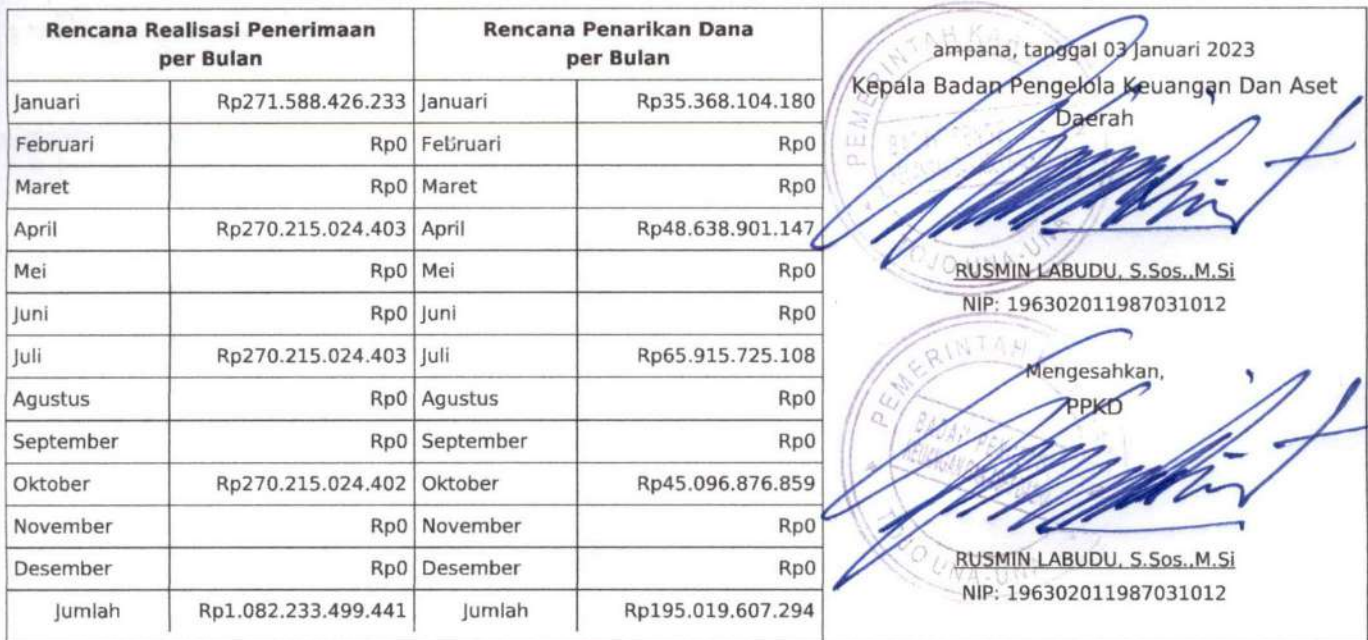 Rencana Realisasi Penerimaan per Bulan
Rencana Penarikan Dana per Bulan
Januari Rp271.588.426.233 Januari Rp35.368.104.180
Februari Rp0 Februari Rp0
Maret Rp0 Maret Rp0
April Rp270.215.024.403 April Rp48.638.901.147
Mei Rp0 Mei Rp0
Juni Rp0 Juni Rp0
Juli Rp270.215.024.403 Juli Rp65.915.725.108
Agustus Rp0 Agustus Rp0
September Rp0 September Rp0
Oktober Rp270.215.024.402 Oktober Rp45.096.876.859
November Rp0 November Rp0
Desember Rp0 Desember Rp0
Jumlah Rp1.082.233.499.441 Jumlah Rp195.019.607.294
ampana, tanggal 03 Januari 2023
Kepala Badan Pengelola Keuangan Dan Aset
Daerah
RUSMIN LABUDU, S.Sos.,M.Si
NIP: 196302011987031012
Mengesahkan,
PPKD
RUSMIN LABUDU, S.Sos.,M.Si
NIP: 196302011987031012